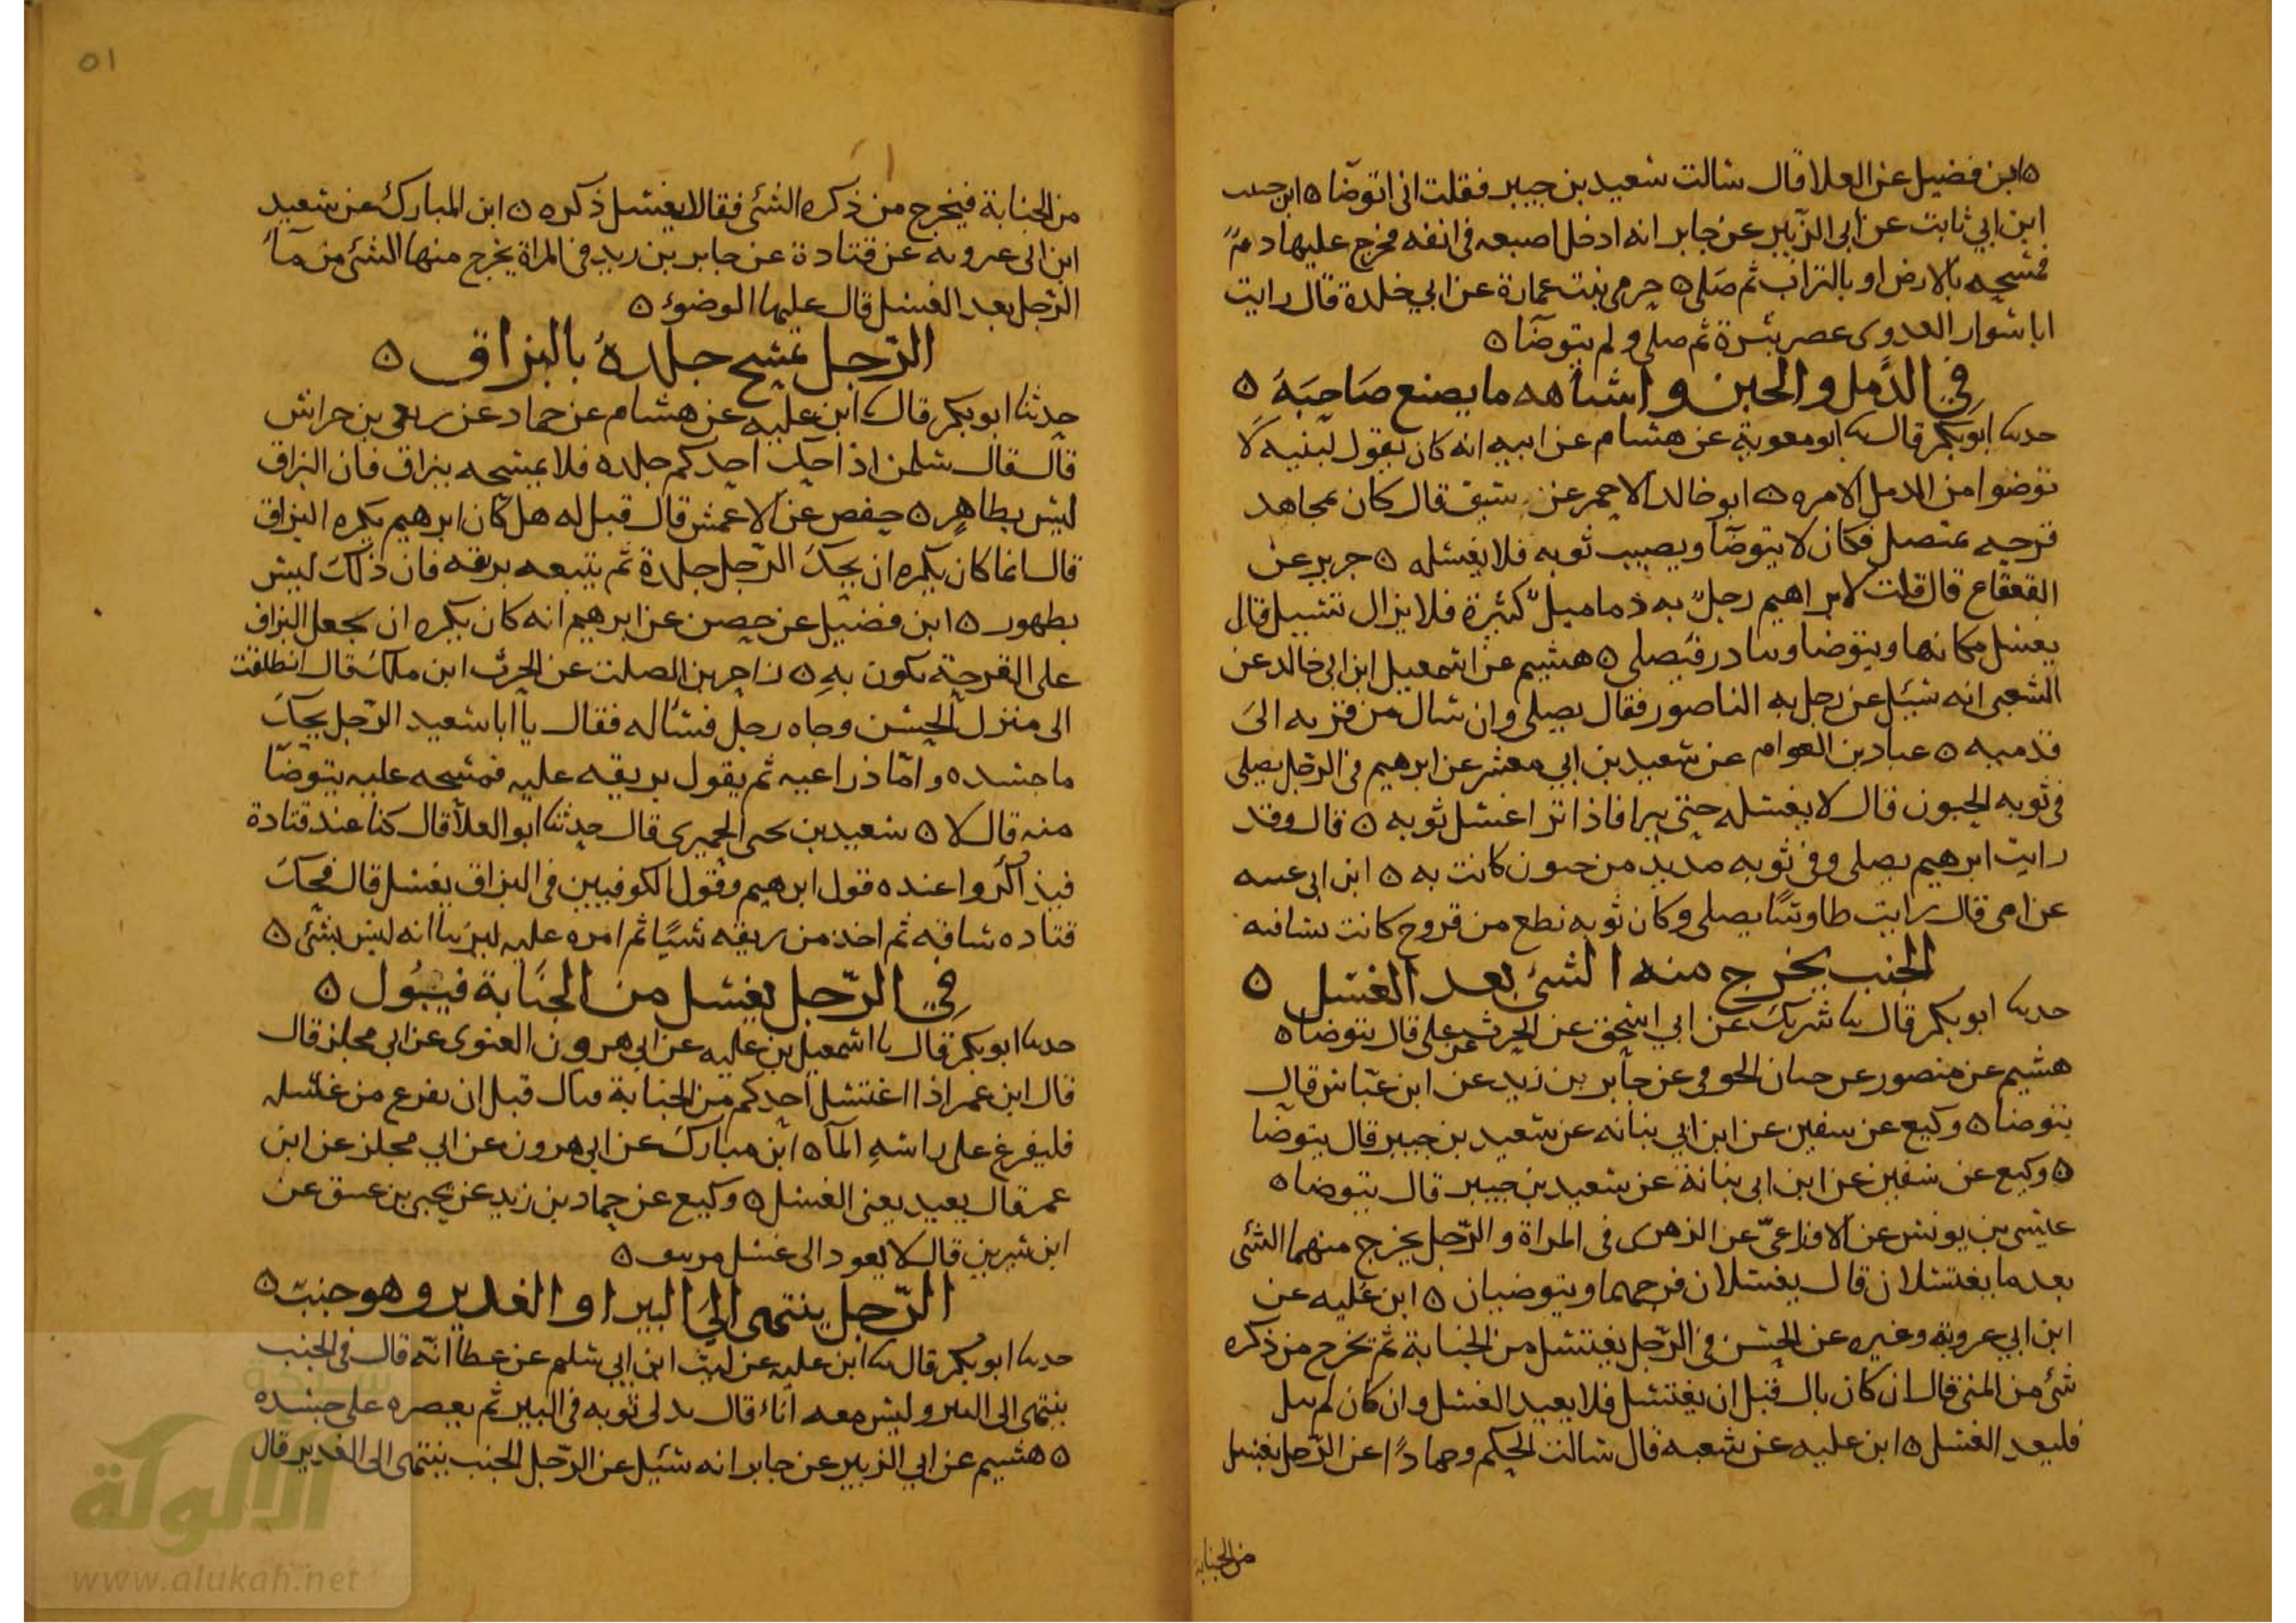 ابن فضيل عن العلا قال سالت سعيد بن جبير فقلت اني اتوضا ابن
ابن ابي ثابت عن ابي الزبير عن جابر انه ادخل اصبعه في انفه فخرج عليها دم
فمسحه بالارض او بالتراب ثم صلى حرمي بنت عمارة عن ابي خلدة قال رايت
ابا سوار العدوي عصر بثرة ثم صلى ولم يتوضا
في الدمل والحبن واشباهه ما يصنع صاحبه
حدثنا ابو بكر قال ثنا ابو معوية عن هشام عن ابيه انه كان يقول لبنيه لا
توضوا من الدمل الا مره ابو خالد الاحمر عن قال كان مجاهد
قرحه عتصل فكان لا يتوضا ويصيب ثوبه فلا يغسله جرير عن
القعقاع قال قلت لابراهيم رجل به دماميل كثيرة فلا يزال تسيل قال
يغسل مكانها ويتوضا ويبادر فيصلي هشيم عن اسمعيل ابن ابي خالد عن
الشعبي انه سئل عن رجل به الناصور فقال يصلي وان سال من قرنه الى
قدميه عباد بن العوام عن سعيد بن ابي معشر عن ابرهيم في الرجل يصلي
في ثوبه الحبون قال لا يغسله حتى يبرا فاذا برا غسل ثوبه قال وقد
رايت ابرهيم يصلي وفي ثوبه مديد من حبون كانت به ابن ابي
عن امي قال رايت طاوسا يصلي وكان ثوبه نطع من قروح كانت بساقيه
الجنب يخرج منه الشئ بعد الغسل
حدثنا ابو بكر قال ثنا شريك عن ابي اسحق عن الحرث عن علي قال يتوضا
هشيم عن منصور عن حيان الجوفي عن جابر بن زيد عن ابن عباس قال
يتوضا وكيع عن سفين عن ابن ابي بنانه عن سعيد بن جبير قال يتوضا
وكيع عن سفين عن ابن ابي بنانة عن سعيد بن جبير قال يتوضا
عيسى بن يونس عن الاوزاعي عن الزهري في المراة والرجل يخرج منهما الشئ
بعد ما يغتسلان قال يغسلان فرجهما ويتوضيان ابن علية عن
ابن ابي عروبة وغيره عن الحسن في الرجل يغتسل من الجنابة ثم يخرج من ذكره
شئ من المني قال ان كان بال قبل ان يغتسل فلا يعيد الغسل وان كان لم يبل
فليعد الغسل ابن عليه عن شعبه قال سالت الحكم وحمادا عن الرجل يغتسل
من الجنابة
٥١
من الجنابة فيخرج من ذكره الشئ فقالا يغسل ذكره ابن المبارك عن سعيد
ابن ابي عروبه عن قتادة عن جابر بن زيد في المراة يخرج منها الشئ من مآ
الرجل بعد الغسل قال عليها الوضوء
الرجل يمسح جلده بالبزاق
حدثنا ابو بكر قال ثنا ابن عليه عن هشام عن حماد عن ربعي بن حراش
قال قال سلمن اذا حك احدكم جلده فلا يمسحه ببزاق فان البزاق
ليس بطاهر حفص عن الاعمش قال قيل له هل كان ابرهيم يكره البزاق
قال انما كان يكره ان يحك الرجل جلدة ثم يتبعه بريقه فان ذلك ليس
بطهور ابن فضيل عن حصين عن ابرهيم انه كان يكره ان يجعل البزاق
على القرحة تكون به زاجر بن الصلت عن الحرث ابن ملك قال انطلقت
الى منزل الحسن وجاه رجل فساله فقال يا ابا سعيد الرجل يحك
ما جسده واما ذراعيه ثم يقول بريقه عليه فمسحه عليه يتوضا
منه قال لا سعيد بن يحيى الحميري قال حدثنا ابو العلا قال كنا عند قتادة
فيذاكروا عنده قول ابرهيم وقول الكوفيين في البزاق يغسل قال فحك
قتاده ساقه ثم اخذ من ريقه شيا ثم امره عليه ليرينا انه ليس بشئ
في الرجل يغسل من الجنابة فيبول
حدثنا ابو بكر قال ثنا اسمعيل بن عليه عن ابي هرون الغنوي عن ابي مجلز قال
قال ابن عمر اذا اغتسل احدكم من الجنابة فبال قبل ان يفرغ من غسله
فليفرغ على راسه المآ ابن مبارك عن ابي هرون عن ابي مجلز عن ابن
عمر قال يعيد يعني الغسل وكيع عن حماد بن زيد عن يحيى بن عتيق عن
ابن سيرين قال لا يعود الى غسل
الرجل ينتهي الى البير او الغدير وهو جنب
حدثنا ابو بكر قال ثنا ابن عليه عن ليث ابن ابي سليم عن عطا انه قال في الجنب
ينتهي الى البير وليس معه اناء قال يدلي ثوبه في البير ثم يعصره على جسده
هشيم عن ابي الزبير عن جابر انه سئل عن الرجل الجنب ينتهي الى الغدير قال
الألوكة
www.alukah.net